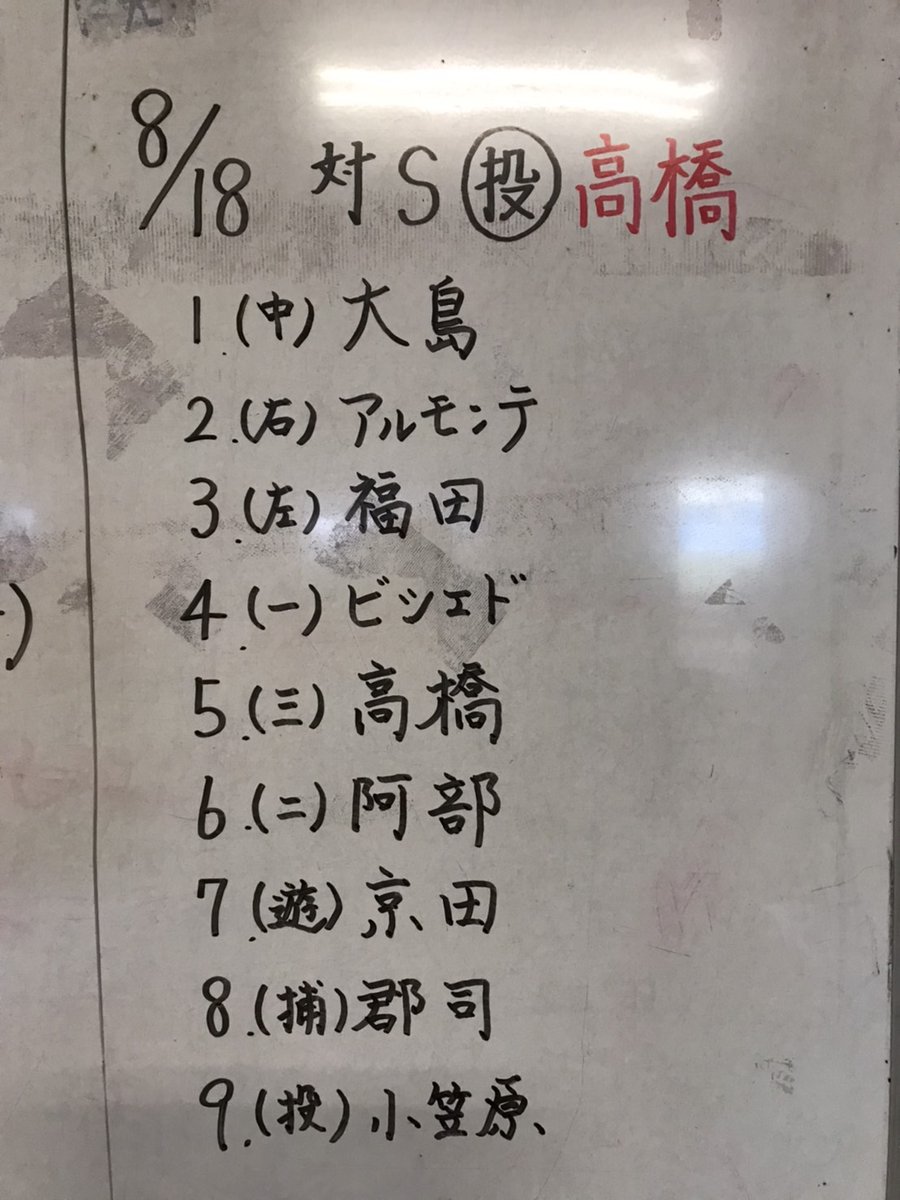 8/18 対S 投 高橋
1.(中)大島
2.(右)アルモンテ
3.(左)福田
4.(一)ビシエド
5.(三)高橋
6.(二)阿部
7.(遊)京田
8.(捕)郡司
9.(投)小笠原